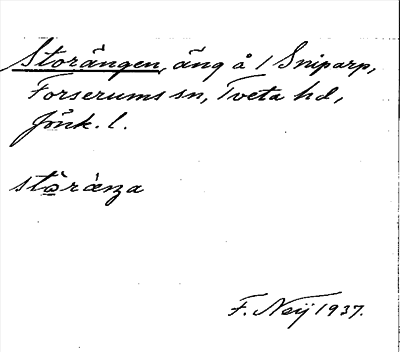 Storängen, äng å 1 Sniparp,
Forserums sn, Tveta hd,
Jönk. l.
stòrǽnza
F. Neij 1937.